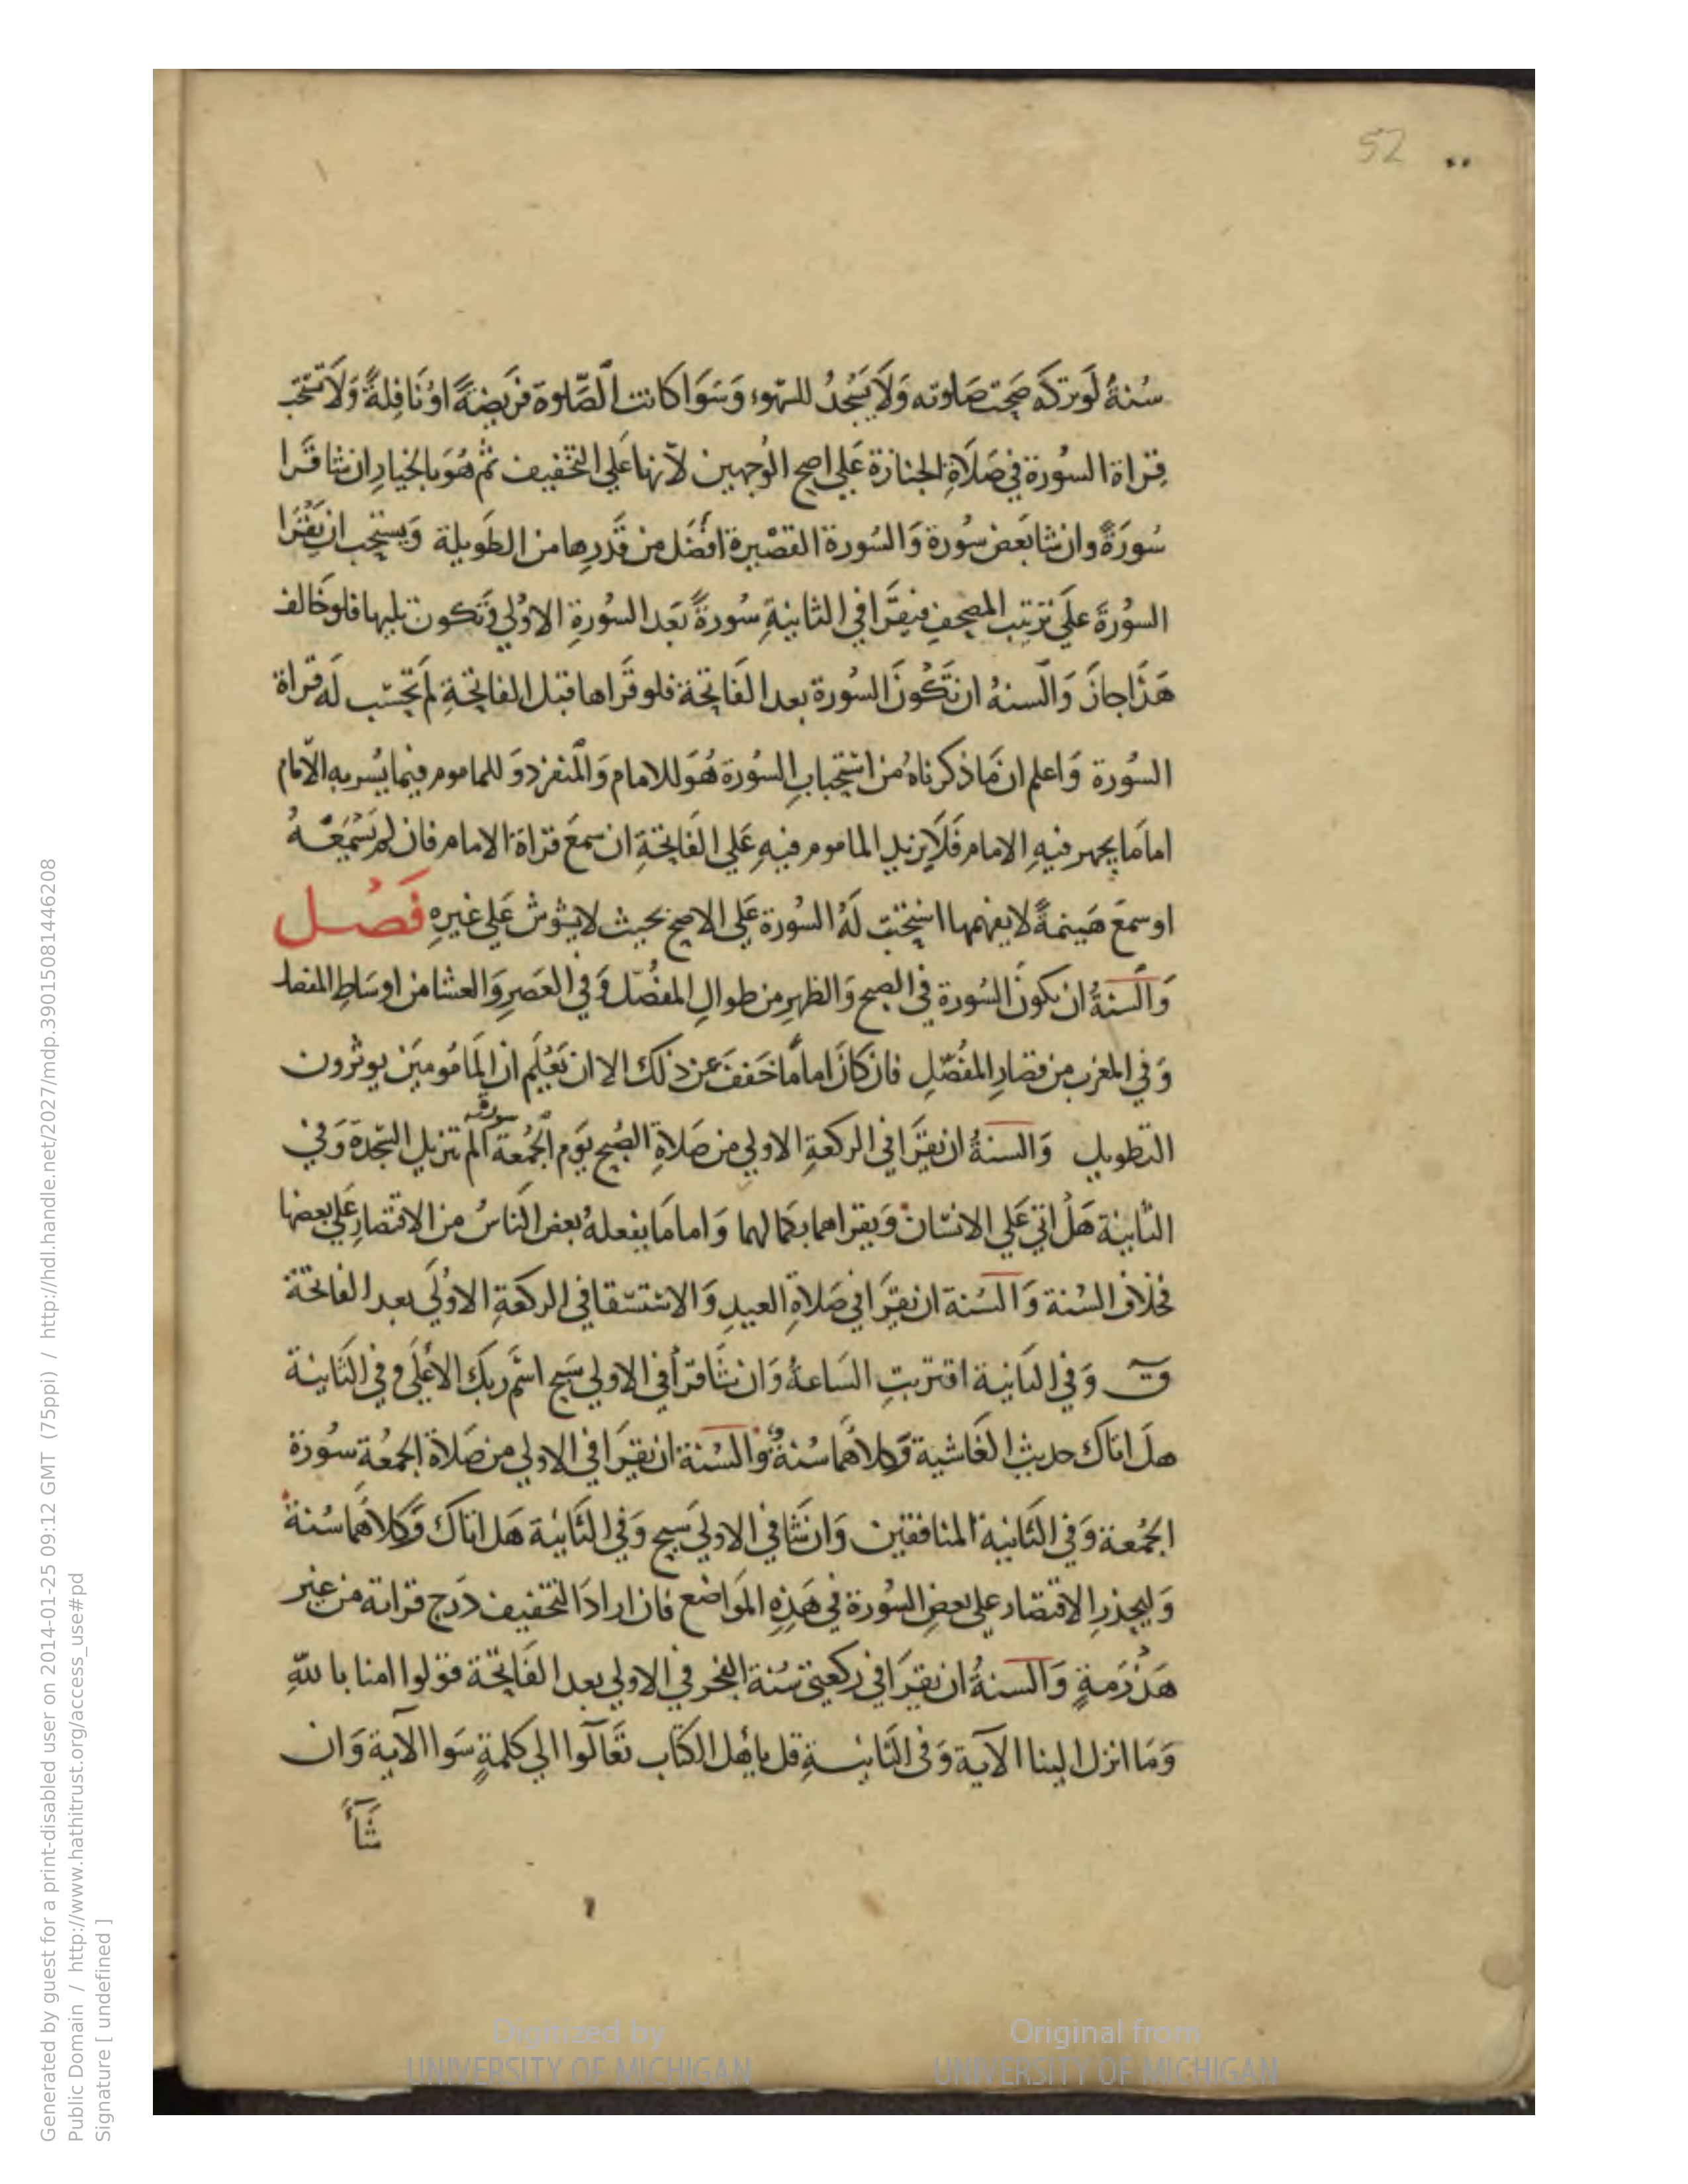 52
سُنةُ لَو تركَه صَحت صَلوته وَلَا يَسْجدُ للسَّهوء وَسَوَا كانت الصَّلوة فَريضةً اوْ نَافِلةً وَلَا تستحَب
قِراة السُورة في صَلَاةِ الجنازة عَلي اصح الوَجهين لانها عَلي التخفيف ثم هُوَ بالخيارِ ان شا قَرا
سُورَةً وان شا بَعض سُورة وَالسُورة القصْيرة افضَل من قَدرِها من الطَويلة وَيستحِب ان يَقْرَا
السُورَةَ علَي ترتيب المصحفِ فيقرَا في الثانيةِ سُورةً بَعد السورةِ الاوْلي وَتكون تليها فلو خَالف
هَذا جازَ وَالسنهُ ان تَكُونَ السُورة بعد الفَاتحَة فلو قَراها قبل الفاتحَةِ لم تحسَب لَه قراة
السُورة وَاعلم ان مَا ذكرناهُ من استحبابِ السورة هُوَ للامام وَالمنفرد وَ للماموم فيما يُسر به الامام
اما مَا يجهر فيهِ الامام فَلَا يزيد الماموم فيهِ عَلي الفَاتحَةِ ان سمعَ قراة الامام فان لم يَسْمَعْهُ
او سمعَ هَينمةً لا يفهمها استحبت لَهُ السُورة عَلي الاصح بحيث لا يشوش عَلي غيرهِ فَصْل
وَالسنةُ ان يكونَ السُورة في الصبح وَالظهرِ من طوالِ المفصَّل وَفي العَصرِ وَالعشا من اوسَاطِ المفصل
وَفي المغرب من قصَارِ المفُصّلِ فان كانَ اماماً خَففَ عن ذلك الا ان يَعْلَم ان المَامُوميَن يوثرون
التطويل وَالسنةُ ان يقرَا في الركعةِ الاولي من صَلاةِ الصُبح يَوم الجُمعة سورة الم تنزيل السجدة وَفي
الثّانية هَلْ اتي عَلي الانسَان وَيقراهما بكمَالهما وَاما مَا يفعلهُ بعض النَاسُ من الاقتصارِ عَلي بعضها
فخلاف السُنة وَالسُنة ان يقرَا في صَلاةِ العيدِ وَالاستسقا في الركعَةِ الاوْلَي بعد الفاتحَة
قٓ وَفي الثانية اقتربتِ السَاعةُ وَان شَا قرأ في الاولي سَبح اسْم ربكَ الاعْلَي وفي الثَانية
هلَ اتاك حديث الغَاشية وَكلاهُما سُنةٌ وَالسُنة ان يقرَا في الاولي من صَلاة الجمعُة سُورة
الجُمعة وَفي الثَانية المنافقين وَان شَا في الاولي سَبح وَفي الثَانيْة هَل اتاكَ وَكلاهُما سُنةٌ
وَليحذرِ الاقتصار علي بعضِ السُورة في هَذِهِ المَواضع فان ارادَ التخفيف دَرج قراته من غير
هَذْرَمةٍ وَالسنةُ ان يقرَا في ركعتي سُنة الفجر في الاولي بعد الفَاتحَة قولوا امنا باللّهِ
وَمَا انزل الينا الآية وَفي الثَانيةِ قل يا أهل الكتاب تَعَالَوا الي كلمةٍ سَوا الآية وَان
شَآءَ
Generated by guest for a print-disabled user on 2014-01-25 09:12 GMT (75ppi) / http://hdl.handle.net/2027/mdp.39015081446208
Public Domain / http://www.hathitrust.org/access_use#pd
Signature [ undefined ]
Digitized by
UNIVERSITY OF MICHIGAN
Original from
UNIVERSITY OF MICHIGAN